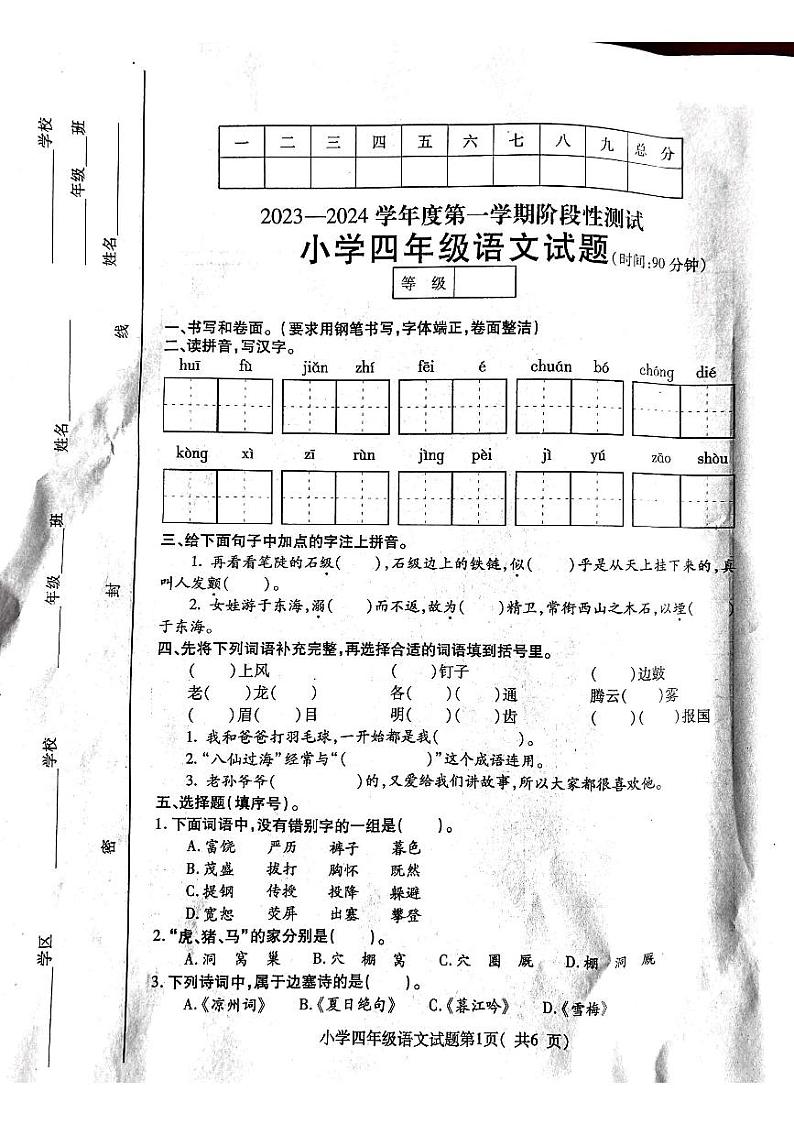 学校
年级 班
姓名
线
姓名
班
年级
封
学校
密
学区
一 二 三 四 五 六 七 八 九 总 分
2023—2024 学年度第一学期阶段性测试
小学四年级语文试题(时间:90分钟)
等 级
一、书写和卷面。(要求用钢笔书写,字体端正,卷面整洁)
二、读拼音,写汉字。
huī fù jiǎn zhí fēi é chuán bó chóng dié
kòng xì zī rùn jìng pèi jì yú zāo shòu
三、给下面句子中加点的字注上拼音。
1. 再看看笔陡的石级( ),石级边上的铁链,似( )乎是从天上挂下来的,真
叫人发颤( )。
2. 女娃游于东海,溺( )而不返,故为( )精卫,常衔西山之木石,以堙( )
于东海。
四、先将下列词语补充完整,再选择合适的词语填到括号里。
( )上风 ( )钉子 ( )边鼓
老( )龙( ) 各( )( )通 腾云( )雾
( )眉( )目 明( )( )齿 ( )( )报国
1. 我和爸爸打羽毛球,一开始都是我( )。
2. “八仙过海”经常与“( )”这个成语连用。
3. 老孙爷爷( )的,又爱给我们讲故事,所以大家都很喜欢他。
五、选择题(填序号)。
1. 下面词语中,没有错别字的一组是( )。
A. 富饶 严历 裤子 暮色
B. 茂盛 拔打 胸怀 既然
C. 提钢 传授 投降 躲避
D. 宽恕 荧屏 出塞 攀登
2. “虎、猪、马”的家分别是( )。
A. 洞 窝 巢 B. 穴 棚 窝 C. 穴 圈 厩 D. 棚 洞 厩
3. 下列诗词中,属于边塞诗的是( )。
A.《凉州词》 B.《夏日绝句》 C.《暮江吟》 D.《雪梅》
小学四年级语文试题第1页( 共6 页)